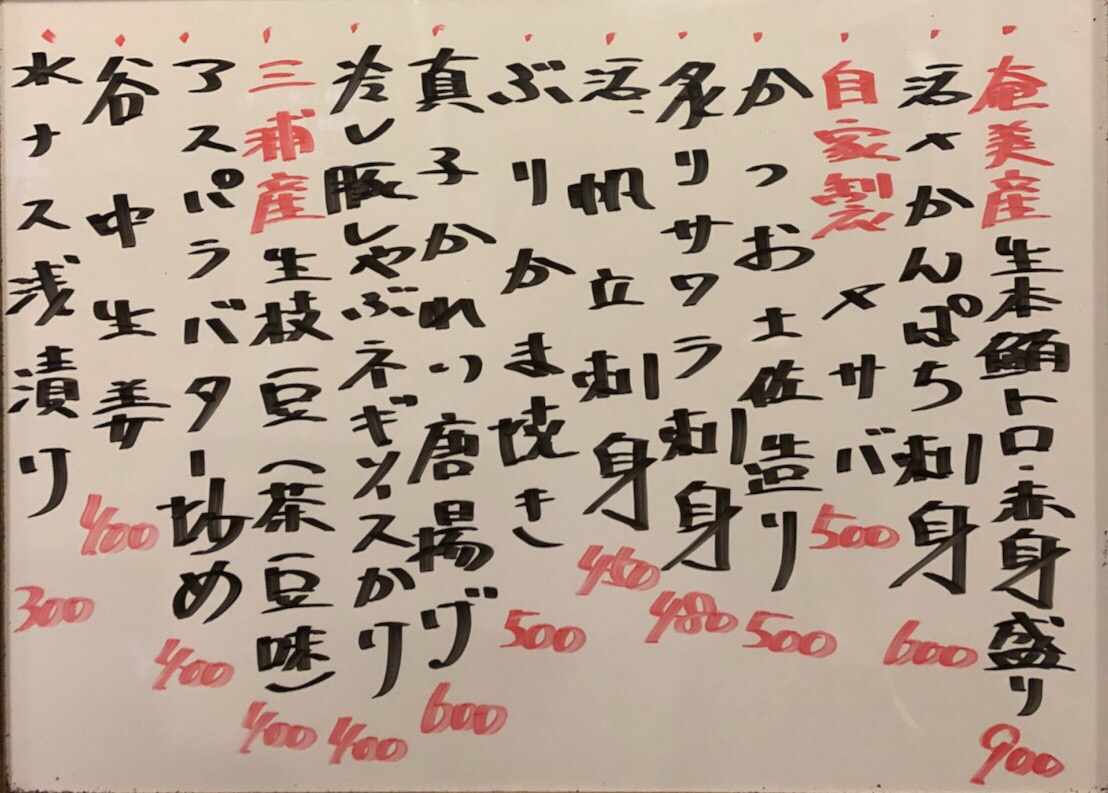 奄美産生本鮪トロ・赤身盛り 900
活〆かんぱち刺身 600
自家製〆サバ 500
かつお土佐造り 500
炙りサワラ刺身 480
活帆立刺身 450
ぶりかま焼き 500
真子かれい唐揚げ 600
冷し豚しゃぶネギソースがけ 400
三浦産生枝豆(茶豆味) 400
アスパラバター炒め 400
谷中生姜 400
水ナス浅漬り 300